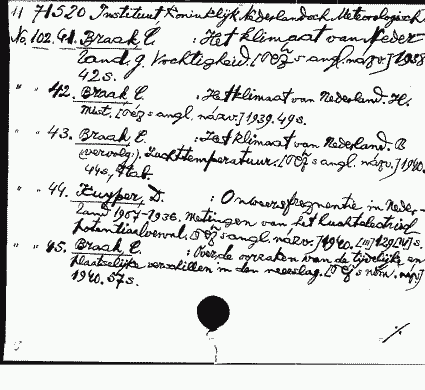 11 71520 Instituut Koninklijk Nederlandsch Meteorologisch
No. 102.41. Braak C. : Het klimaat van Neder-
land. g. Vochtigheid. [Též s angl. názv.] 1938
42s.
" " 42. Braak C. : Het klimaat van Nederland. H.
Mist. [Též s angl. názv.] 1939. 49s.
" " 43. Braak C. : Het klimaat van Nederland. B
(vervolg). Luchttemperatuur. [Též s angl. názv.] 1940.
44s, tab.
" " 44. Kuyper, D. : Onweersfrequentie in Neder-
land 1907-1936. Metingen van het luchtelectrisch
potentiaalverval. [Též s angl. názv.] 1940. [III] 129 [IV] s.
" " 45. Braak C. : Over de oorzaken van de tijdelijke en
plaatselijke verschillen in den neerslag. [Též s něm. názv.]
1940. 57s.